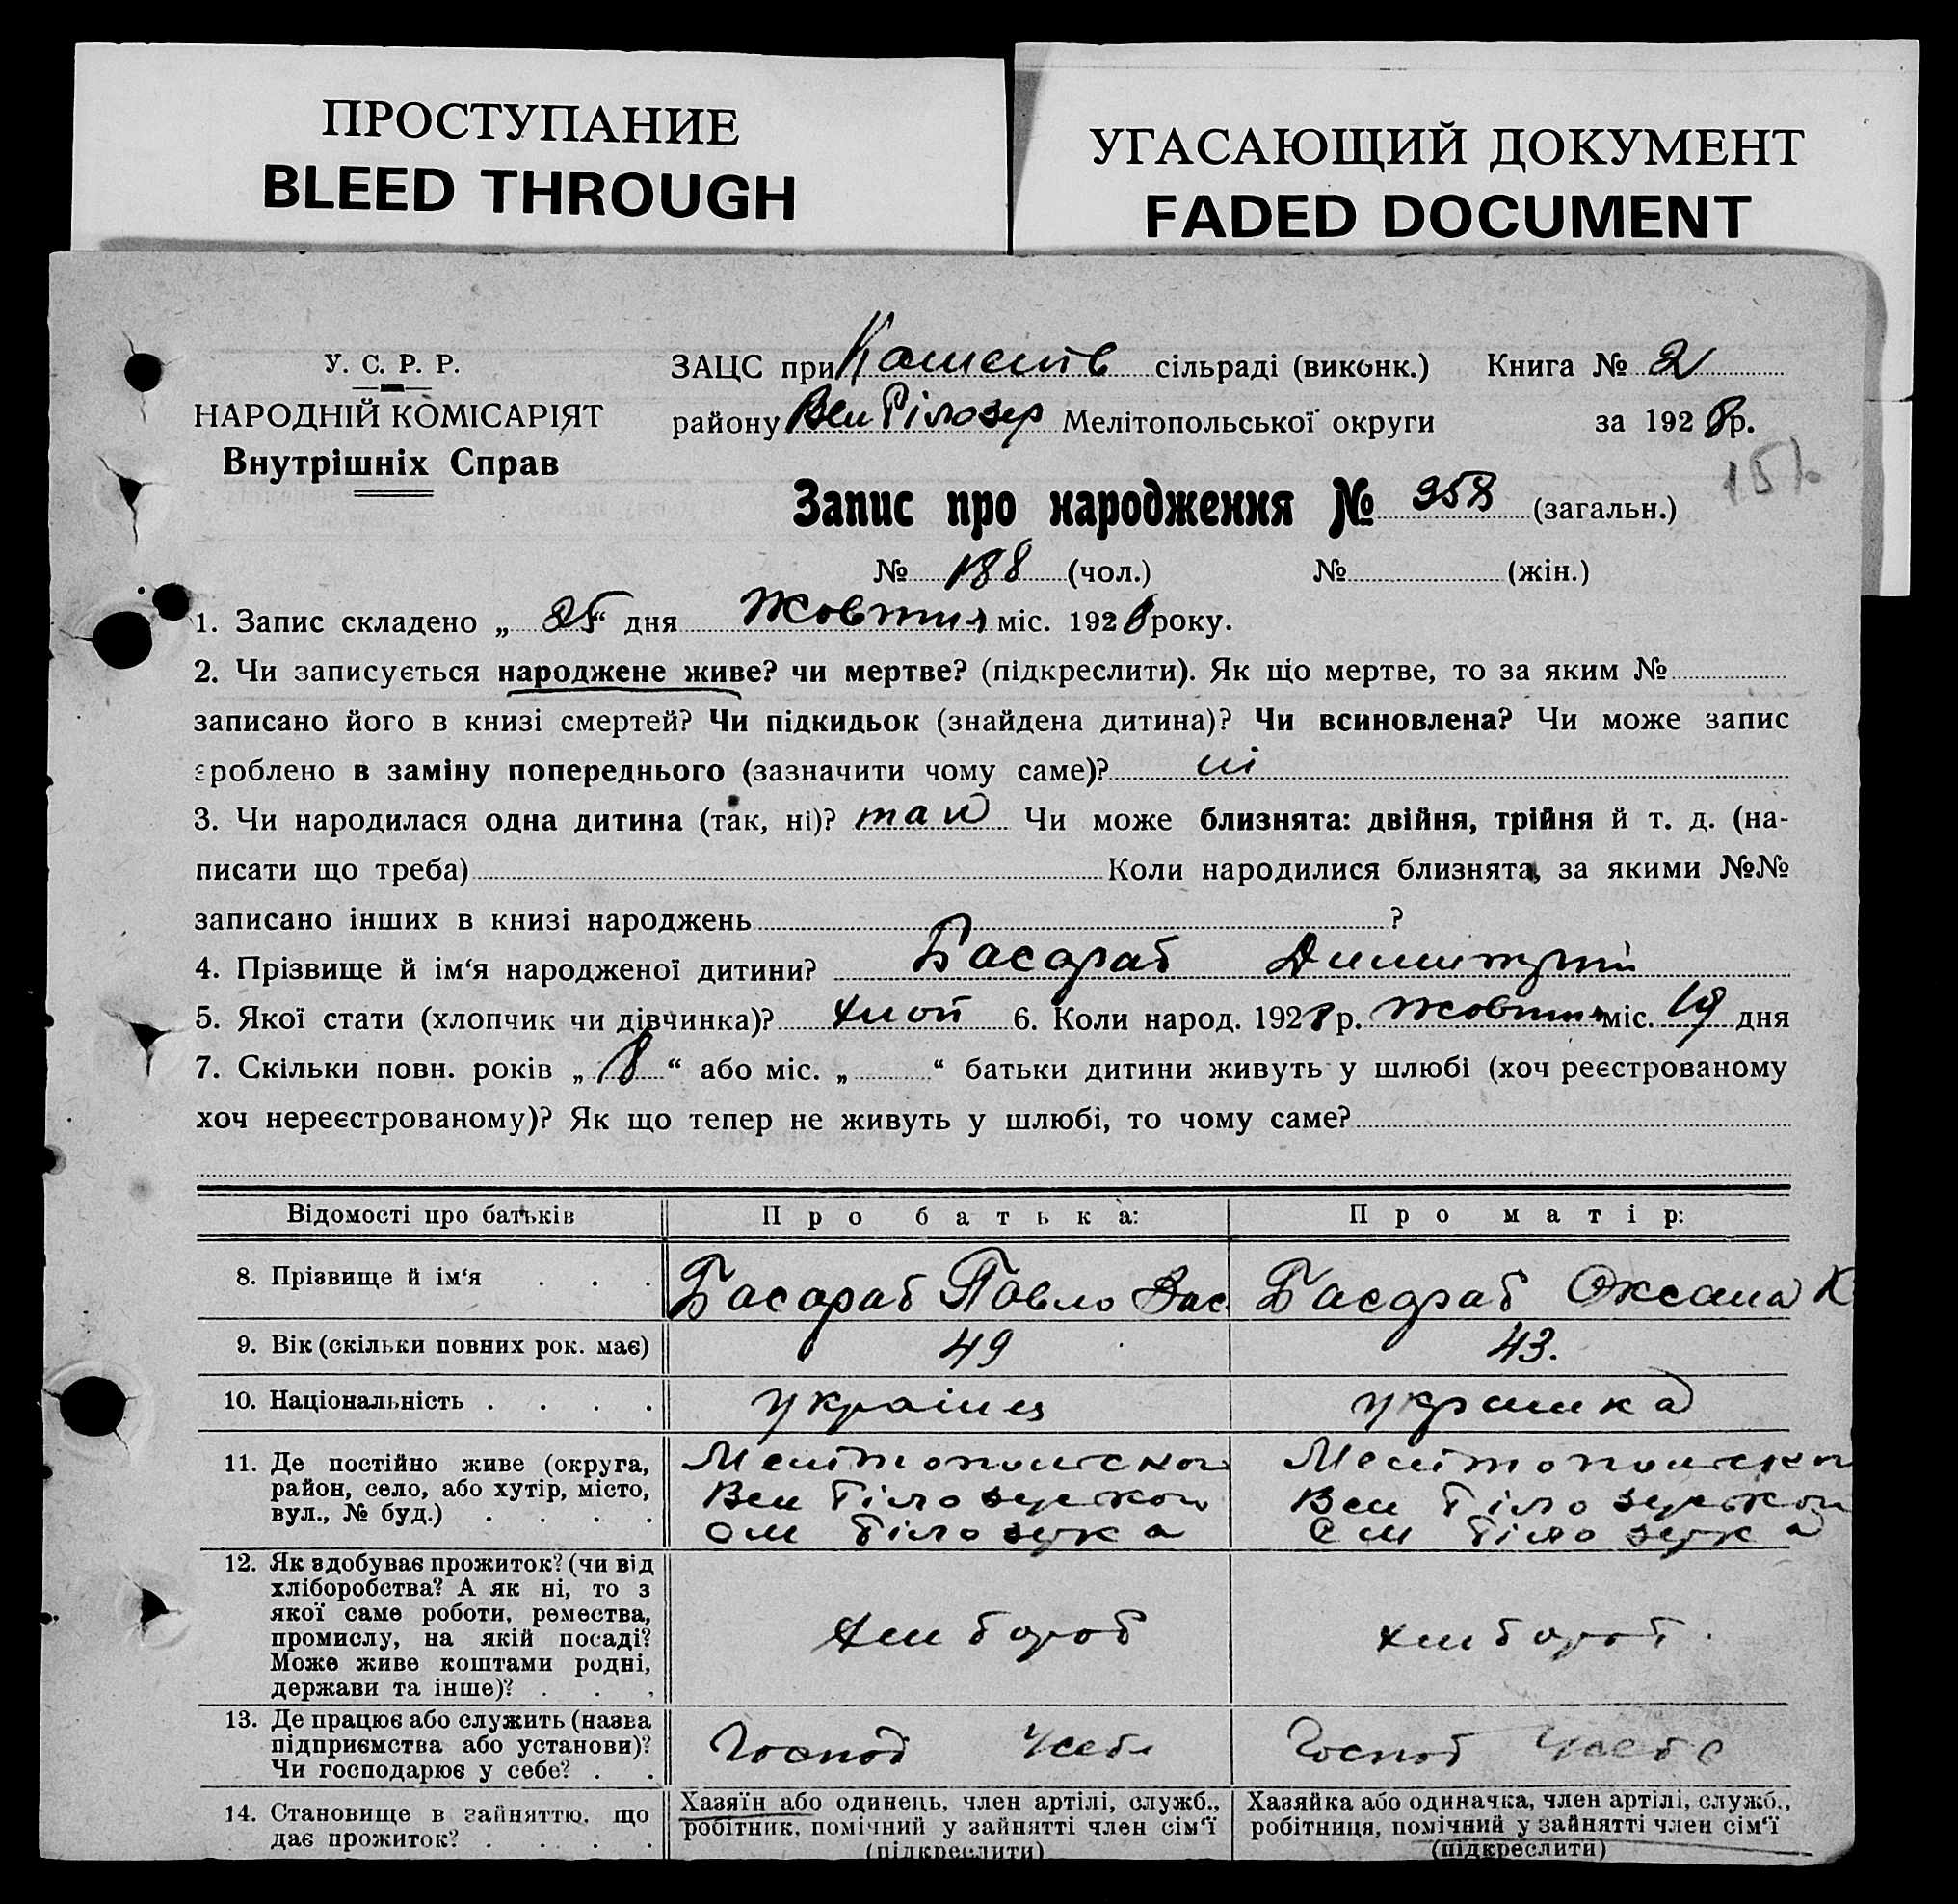 ПРОСТУПАНИЕ
BLEED THROUGH
УГАСАЮЩИЙ ДОКУМЕНТ
FADED DOCUMENT
У. С. Р. Р.
НАРОДНІЙ КОМІСАРІЯТ
Внутрішніх Справ
ЗАЦС при сільраді (виконк.) Книга № 2
району Вел Білозер Мелітопольської округи за 1928 р.
151
Запис про народження № 358 (загальн.)
№ 188 (чол.) № (жін.)
1. Запис складено „ 25 “ дня Жовтня міс. 1928 року.
2. Чи записується народжене живе? чи мертве? (підкреслити). Як що мертве, то за яким №
записано його в книзі смертей? Чи підкидьок (знайдена дитина)? Чи всиновлена? Чи може запис
зроблено в заміну попереднього (зазначити чому саме)? ні
3. Чи народилася одна дитина (так, ні)? так Чи може близнята: двійня, трійня й т. д. (на-
писати що треба) Коли народилися близнята, за якими №№
записано інших в книзі народжень ?
4. Прізвище й ім‘я народженої дитини? Басараб Димитрій
5. Якої стати (хлопчик чи дівчинка)? хлоп 6. Коли народ. 1928 р. Жовтня міс. 19 дня
7. Скільки повн. років „ 8 “ або міс. „ “ батьки дитини живуть у шлюбі (хоч реєстрованому
хоч нереєстрованому)? Як що тепер не живуть у шлюбі, то чому саме?
Відомості про батьків Про батька: Про матір:
8. Прізвище й ім‘я Басараб Павло Вас Басараб Оксана К
9. Вік (скільки повних рок. має) 49 43.
10. Національність українец украинка
11. Де постійно живе (округа,
район, село, або хутір, місто,
вул., № буд.)
Мелітопольскої
Вел Білозерскої
Вел Білозерка
Мелітопольскої
Вел Білозерскої
Вел Білозерка
12. Як здобуває прожиток? (чи від
хліборобства? А як ні, то з
якої саме роботи, ремества,
промислу, на якій посаді?
Може живе коштами родні,
держави та інше)?
хлибороб
хлибороб
13. Де працює або служить (назва
підприємства або установи)?
Чи господарює у себе?
Господ У себе
Господ У себе
14. Становище в зайняттю, що
дає прожиток?
Хазяїн або одинець, член артілі, служб.,
робітник, помічний у зайнятті член сім‘ї
(підкреслити)
Хазяйка або одиначка, член артілі, служб.,
робітниця, помічний у зайнятті член сім‘ї
(підкреслити)